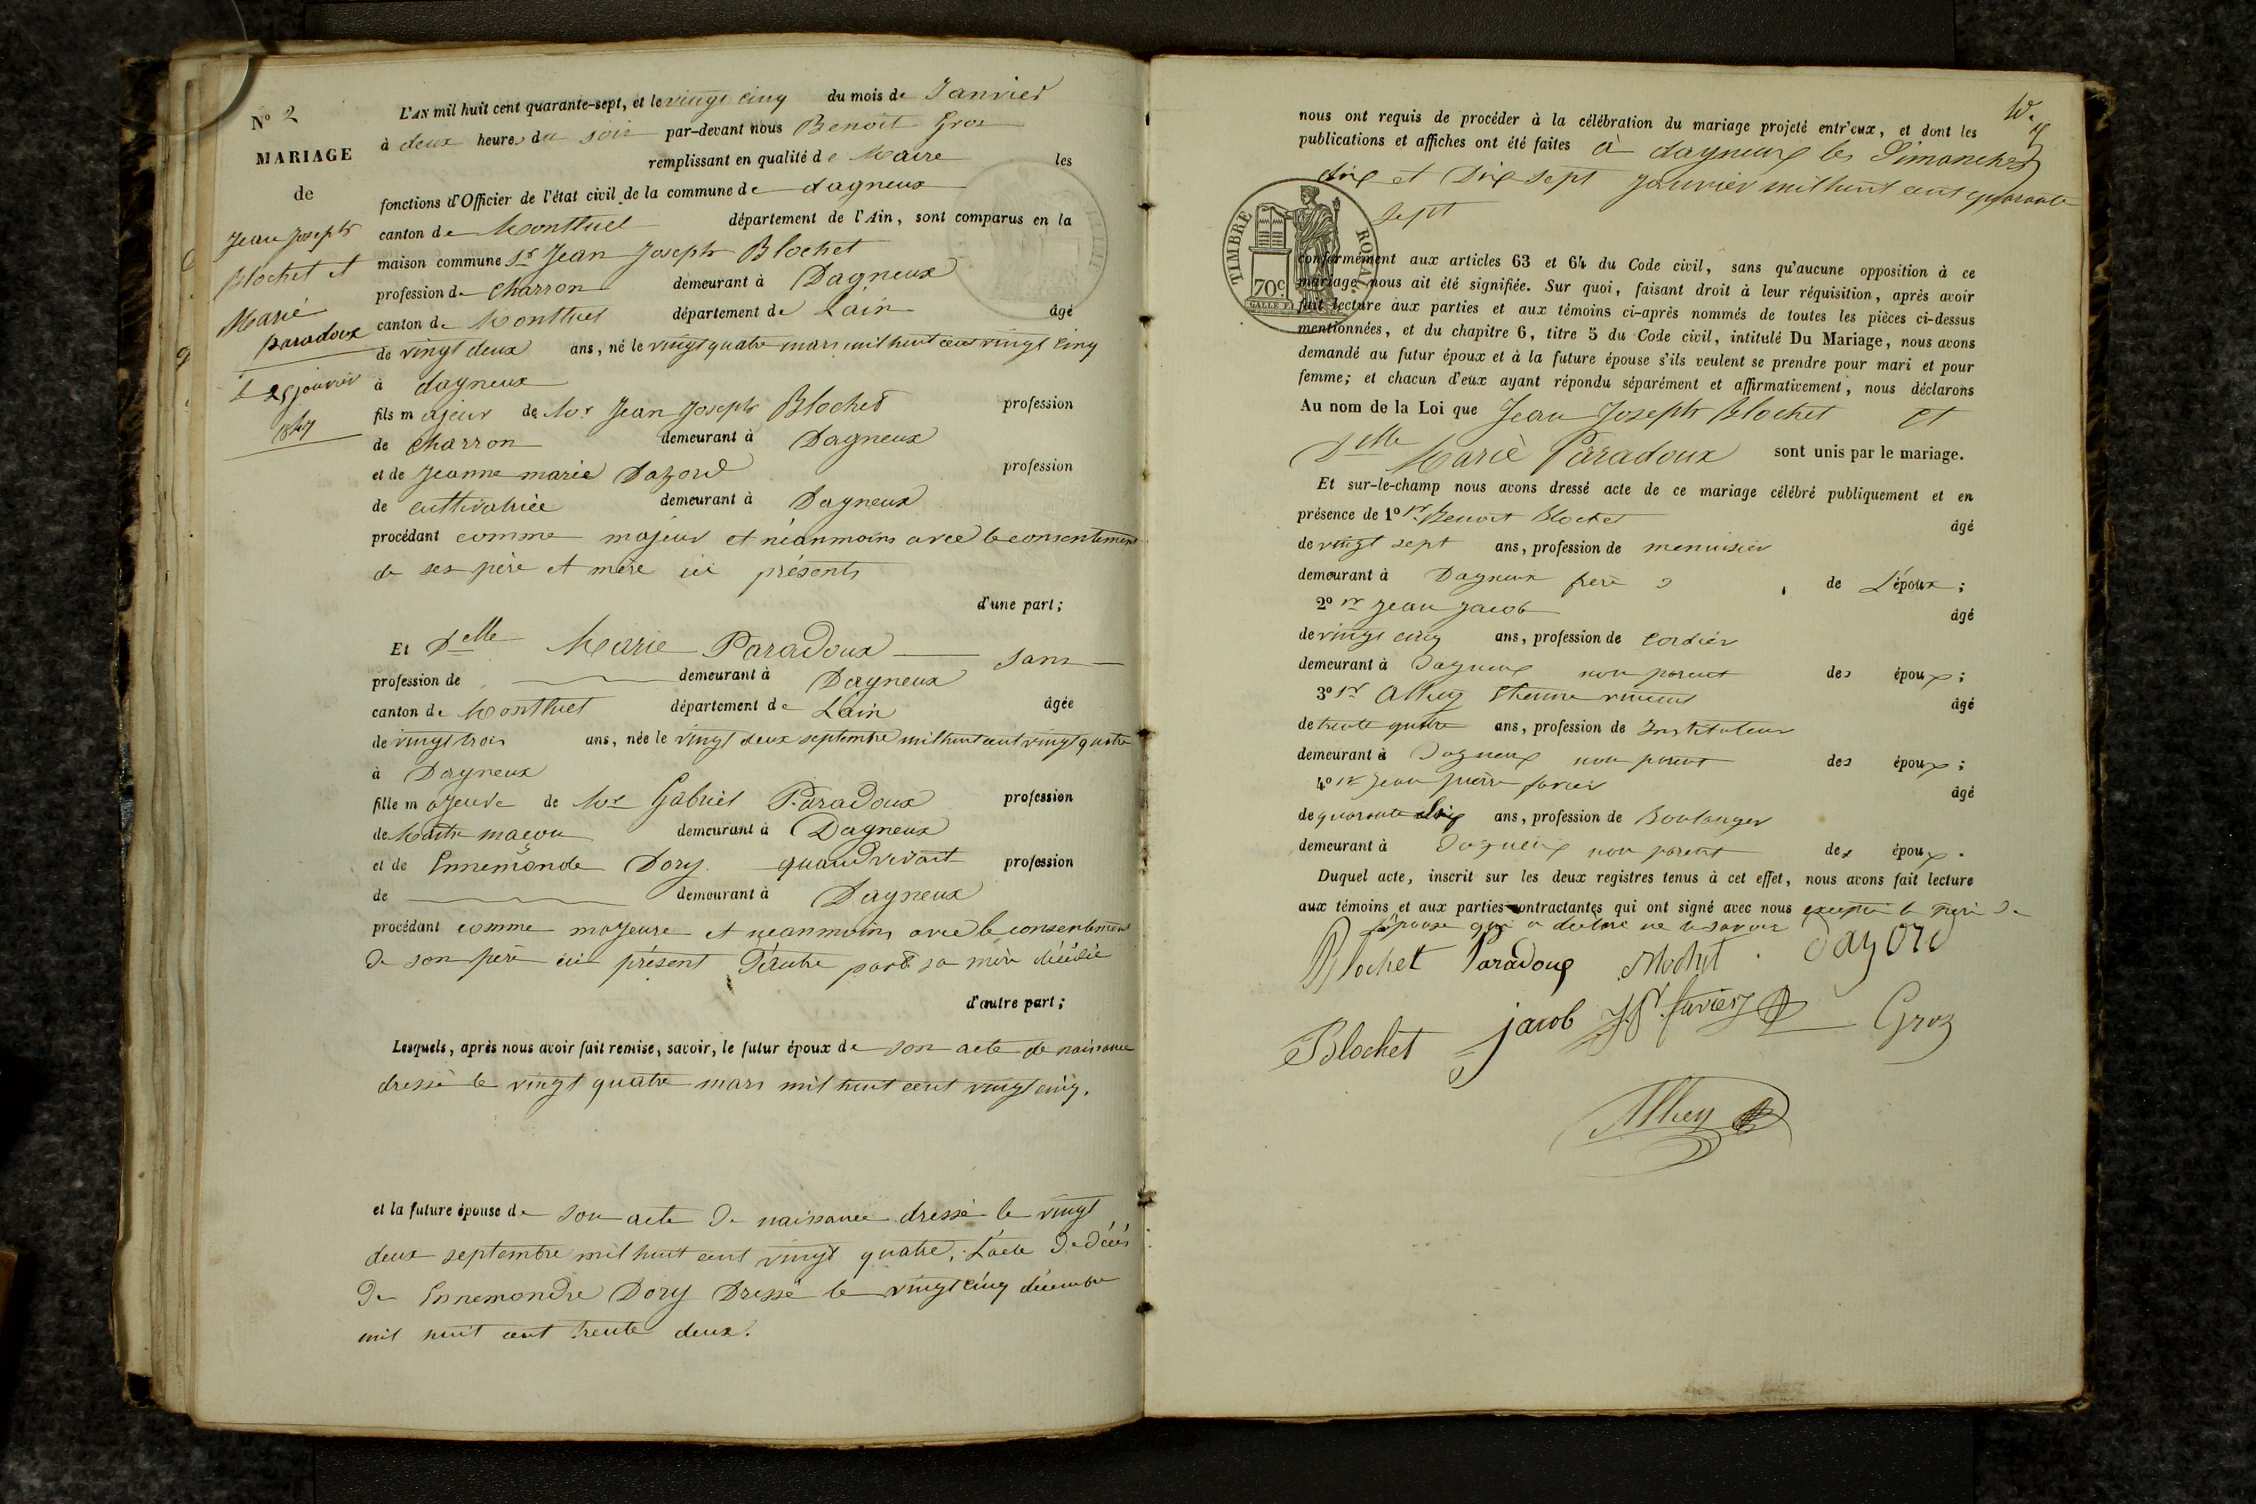 N° 2
MARIAGE
de
Jean Joseph
Blochet et
Marie
Paradoux
le 25 janvier
1847
L'AN mil huit cent quarante-sept, et le vingt cinq du mois de Janvier
à deux heures du soir par-devant nous Benoit Groz
remplissant en qualité de Maire les
fonctions d'Officier de l'état civil de la commune de dagneux
canton de Montluel département de l'Ain, sont comparus en la
maison commune Sr Jean Joseph Blochet
profession de Charron demeurant à Dagneux
canton de Montluel département de Lain âgé
de vingt deux ans, né le vingt quatre mars mil huit cent vingt cinq
à dagneux
fils majeur de Mr Jean Joseph Blochet profession
de Charron demeurant à Dagneux
et de Jeanne marie Dazord profession
de cultivatrice demeurant à Dagneux
procédant comme majeur et néanmoins avec le consentement
de ses père et mère ici présents
d'une part;
Et Delle Marie Paradoux sans
profession de demeurant à Dagneux
canton de Montluel département de Lain âgée
de vingt trois ans, née le vingt deux septembre mil huit cent vingt quatre
à Dagneux
fille majeure de Mr Gabriel Paradoux profession
de Maitre maçon demeurant à Dagneux
et de Ennemonde Dory quand vivait profession
de demeurant à Dagneux
procédant comme majeure et néanmoins avec le consentement
de son père ici présent D'autre part sa mère décédée
d'autre part;
Lesquels, après nous avoir fait remise, savoir, le futur époux de son acte de naissance
dressé le vingt quatre mars mil huit cent vingt cinq.
et la future épouse de son acte de naissance dressé le vingt
deux septembre mil huit cent vingt quatre, L'acte de décès
de Ennemondre Dory Dressé le vingt cinq décembre
mil huit cent trente deux.
nous ont requis de procéder à la célébration du mariage projeté entr'eux, et dont les
publications et affiches ont été faites à dagneux les Dimanches
dix et Dix sept janvier mil huit cent quarante
sept
TIMBRE ROYAL
70c
conformément aux articles 63 et 64 du Code civil, sans qu'aucune opposition à ce
mariage nous ait été signifiée. Sur quoi, faisant droit à leur réquisition, après avoir
fait lecture aux parties et aux témoins ci-après nommés de toutes les pièces ci-dessus
mentionnées, et du chapitre 6, titre 5 du Code civil, intitulé Du Mariage, nous avons
demandé au futur époux et à la future épouse s'ils veulent se prendre pour mari et pour
femme; et chacun d'eux ayant répondu séparément et affirmativement, nous déclarons
Au nom de la Loi que Jean Joseph Blochet et
Delle Marie Paradoux sont unis par le mariage.
Et sur-le-champ nous avons dressé acte de ce mariage célébré publiquement et en
présence de 1° Sr Benoit Blochet âgé
de vingt sept ans, profession de menuisier
demeurant à Dagneux frère de L'époux;
2° Sr Jean Jacob âgé
de vingt cinq ans, profession de Cordier
demeurant à Dagneux non parent des époux;
3° Sr Alhey Etienne vincent âgé
de trente quatre ans, profession de Instituteur
demeurant à Dagneux non parent des époux;
4° Sr Jean Pierre favier âgé
de quarante ans, profession de Boulanger
demeurant à Dagneux non parent des époux.
Duquel acte, inscrit sur les deux registres tenus à cet effet, nous avons fait lecture
aux témoins et aux parties contractantes qui ont signé avec nous excepté le père de
l'épouse qui a déclaré ne le savoir
Blochet Paradoux Blochet Dazord
Blochet jacob J.P. favier Groz
Alhey